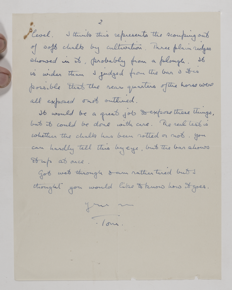 2
level. I think this represents the scooping out
of soft chalk by cultivation. Three plain ridges
showed in it, probably from a plough. It
is wider than I judged from the bar & it is
possible that the rear quarters of the horse were
all exposed not outlined.
It would be a great job to expose these things,
but it could be done with care. The real test is
whether the chalk has been rotted or not. You
can hardly tell this by eye, but the bar shows
it up at once.
Got wet through & am rather tired but I
thought you would like to know how it goes.
Yours
Tom.